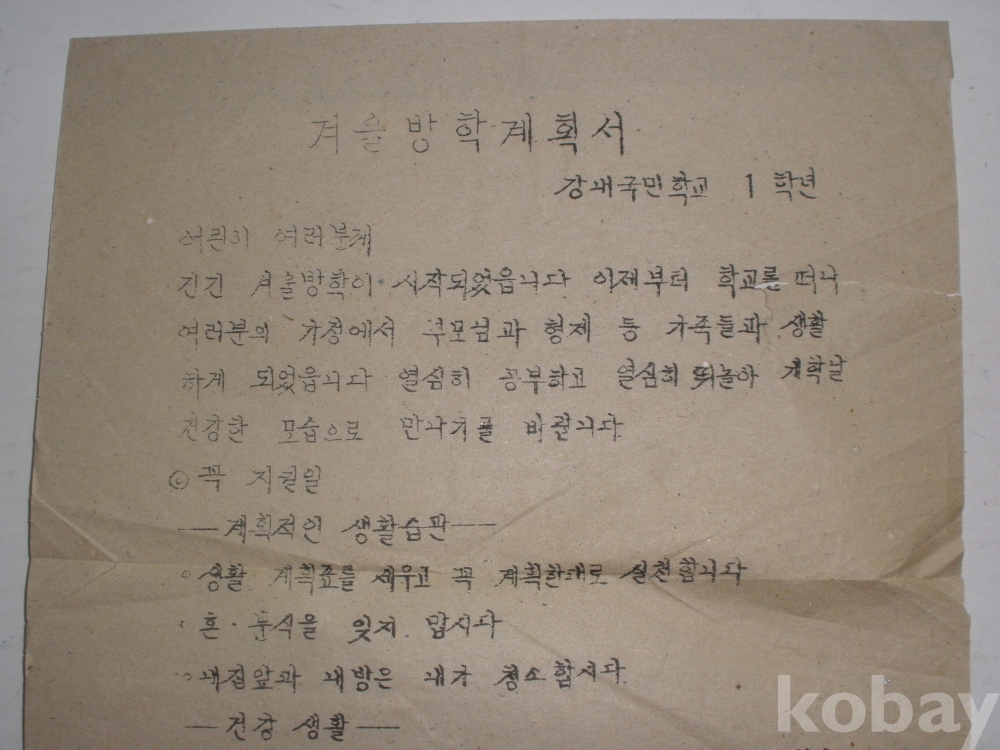 겨울방학계획서
강내국민학교 1 학년
어린이 여러분께
긴긴 겨울방학이 시작되었읍니다 이제부터 학교를 떠나
여러분의 가정에서 부모님과 형제 등 가족들과 생활
하게 되었읍니다 열심히 공부하고 열심히 뛰놀아 개학날
건강한 모습으로 만나기를 바랍니다
◎ 꼭 지킬일
—계획적인 생활습관—
◦ 생활 계획표를 세우고 꼭 계획한대로 실천합니다
◦ 혼·분식을 잊지 맙시다
◦ 내집앞과 내방은 내가 청소합시다
—건강 생활—
kobay